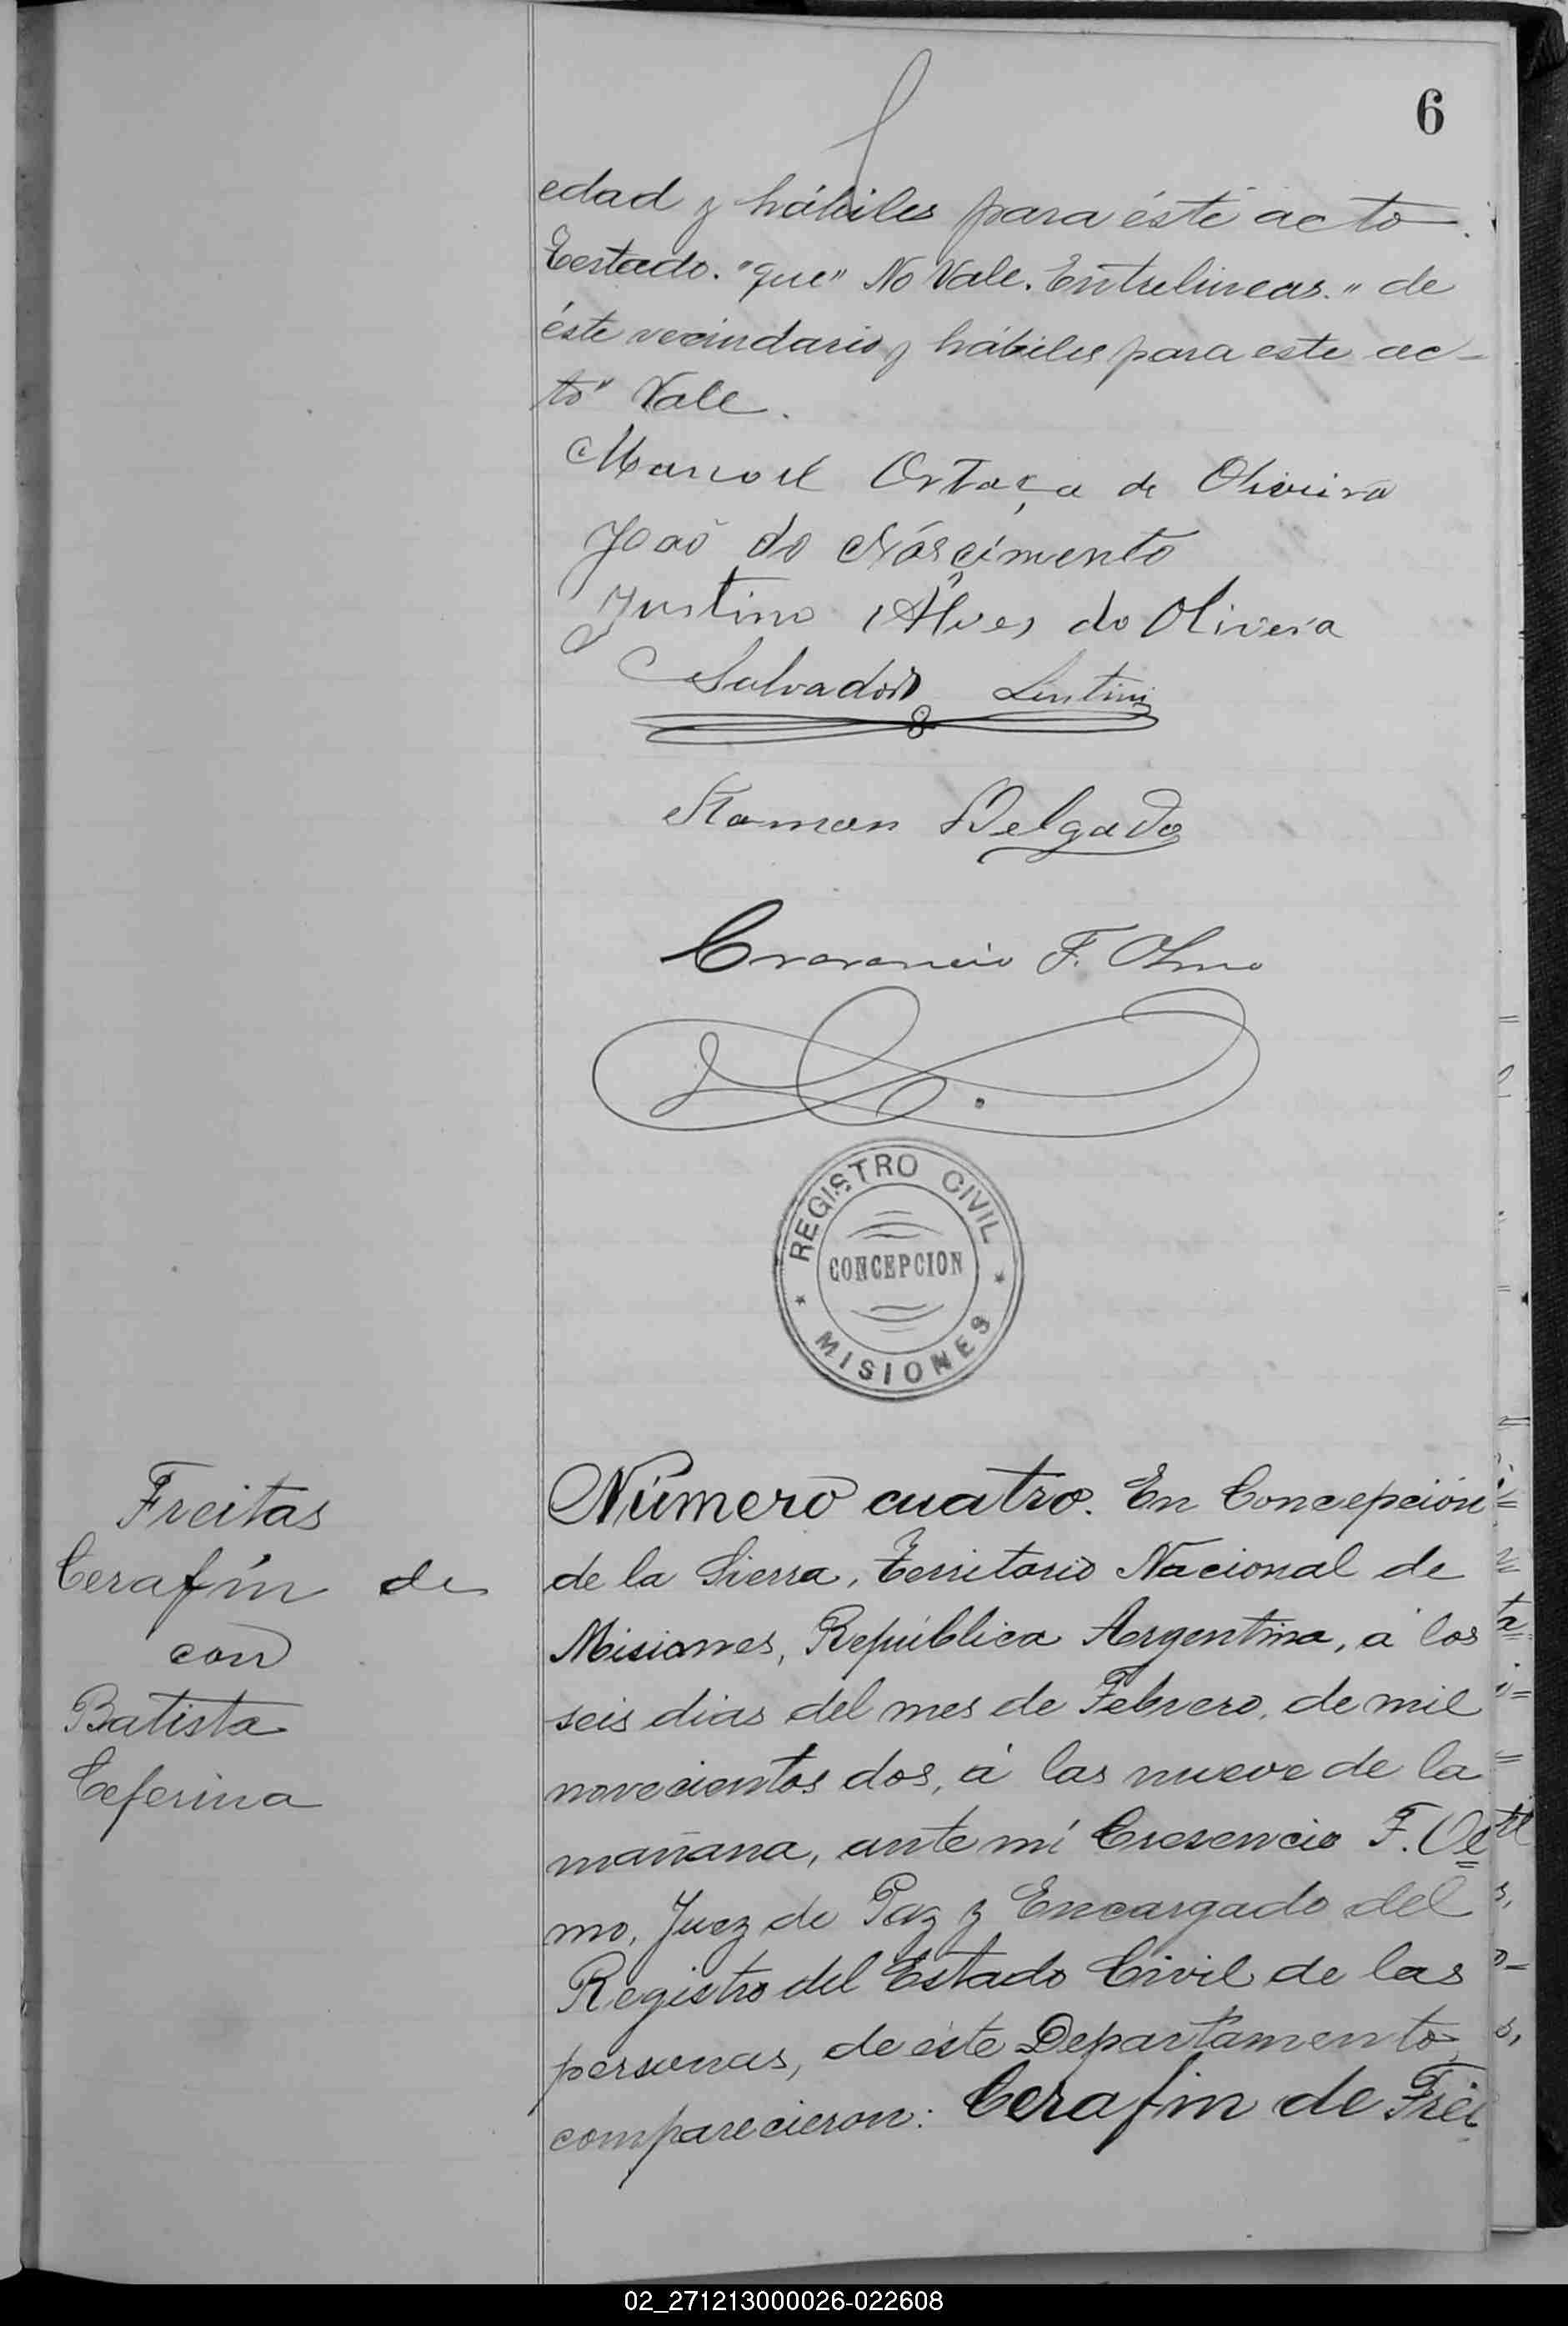 6
edad y hábiles para éste acto.
Testado. "que" No Vale. Entrelineas. " de
éste vecindario y hábiles para este ac-
to" Vale.
Manoel Ortaça de Oliveira
João do Násçimento
Justino Alves do Olivera
Salvador Lentini
Ramon Delgado
Cresencio F. Olmo
REGISTRO CIVIL
CONCEPCION
MISIONES
Freitas
Cerafín de
con
Batista
Ceferina
Número cuatro. En Concepción
de la Sierra, Territorio Nacional de
Misiones, República Argentina, á los
seis dias del mes de Febrero, de mil
novecientos dos, á las nueve de la
mañana, ante mí Cresencio F. Ol=
mo, Juez de Paz y Encargado del
Registro del Estado Civil de las
personas, de éste Departamento,
comparecieron: Cerafin de Frei
02_271213000026-022608